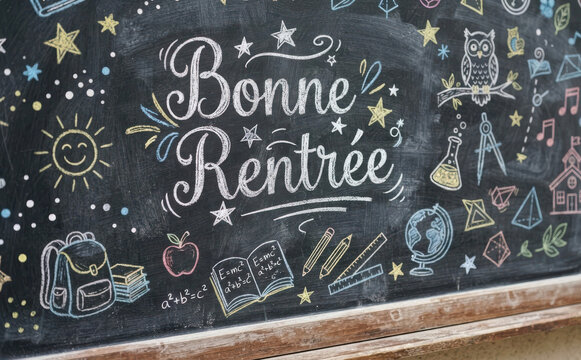 Bonne
Rentrée
E=mc²
a²+b²=c²
E=mc²
a²+b²=c²
a²+b²=c²